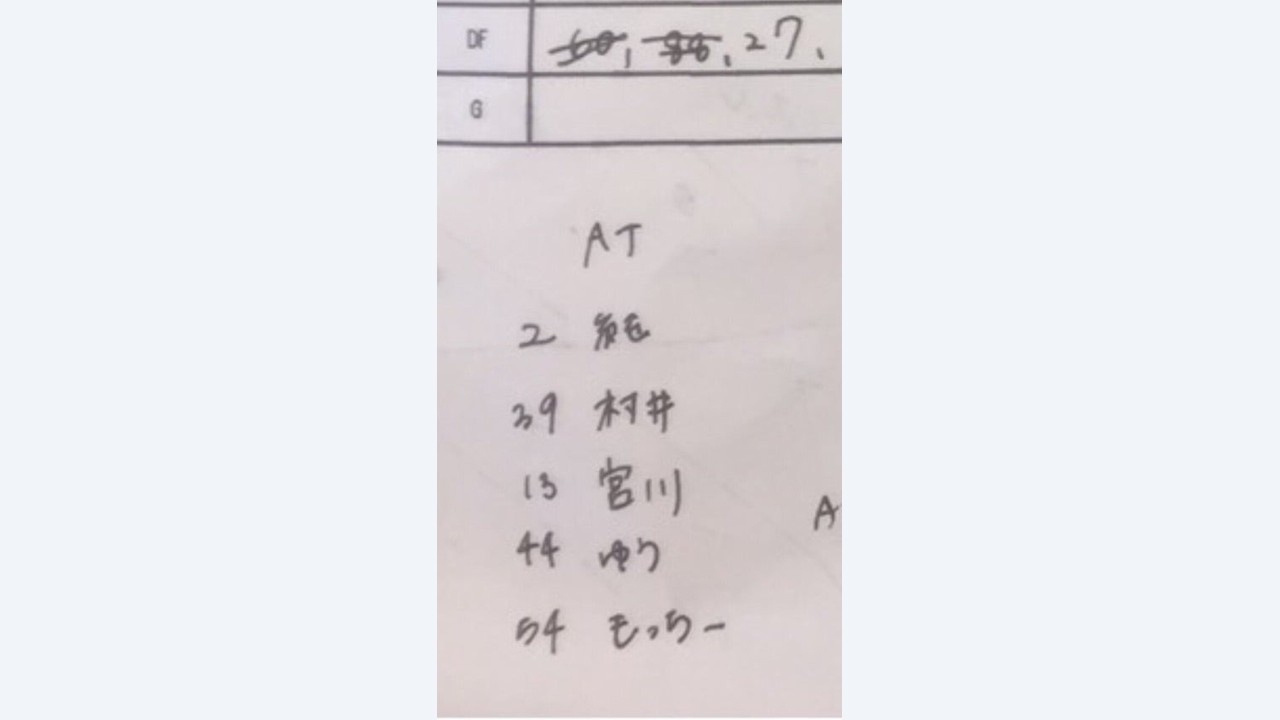 DF 27、
G
AT
2
39 村井
13 宮川
44 ゆう
54 もっちー
A